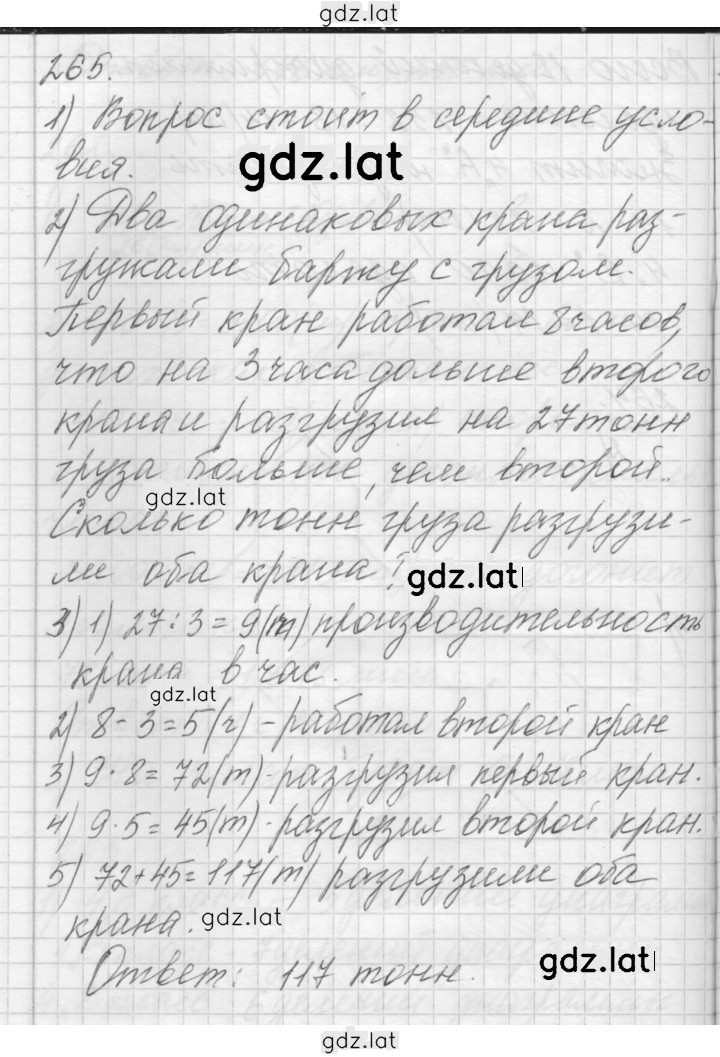 gdz.lat
265.
1) Вопрос стоит в середине усло-
вия.
gdz.lat
2) Два одинаковых крана раз-
гружали баржу с грузом.
Первый кран работал 8 часов,
что на 3 часа дольше второго
крана и разгрузил на 27 тонн
груза больше, чем второй.
gdz.lat
Сколько тонн груза разгрузи-
ли оба крана?
gdz.lat
3) 1) 27 : 3 = 9 (т) производительность
крана в час.
gdz.lat
2) 8 - 3 = 5 (ч) - работал второй кран
3) 9 · 8 = 72 (т) - разгрузил первый кран.
4) 9 · 5 = 45 (т) - разгрузил второй кран.
5) 72 + 45 = 117 (т) разгрузили оба
крана.
gdz.lat
Ответ: 117 тонн.
gdz.lat
gdz.lat